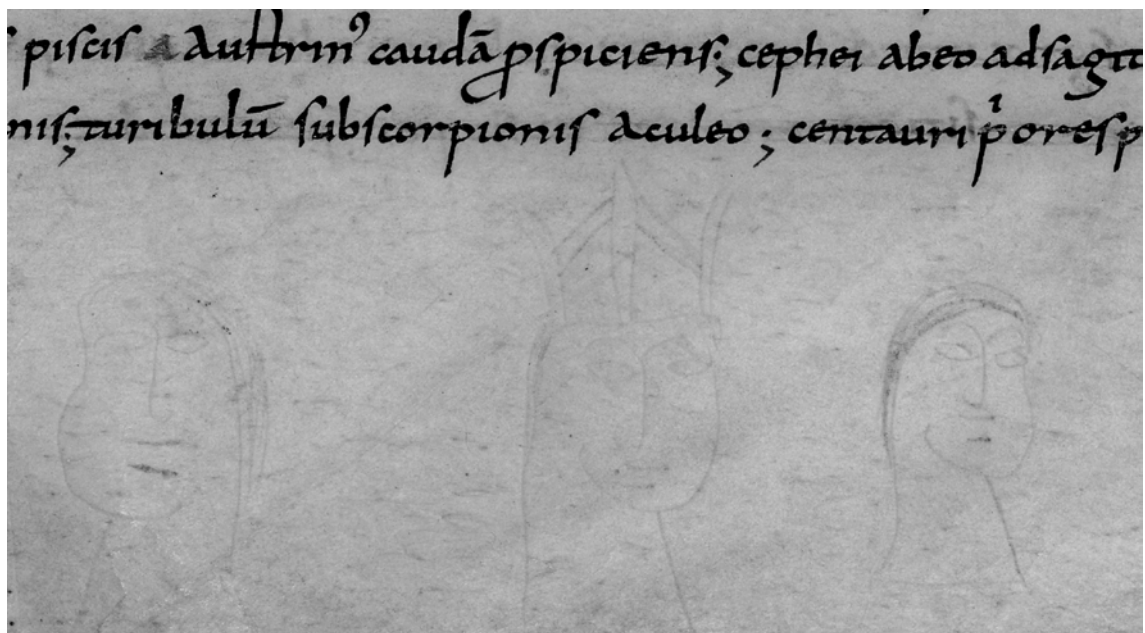 piscis Austrin᾽ caudā ꝓspiciens; cephei abeo adsagit
nis; turibulū subscorpionis aculeo; centauri p̍ores p